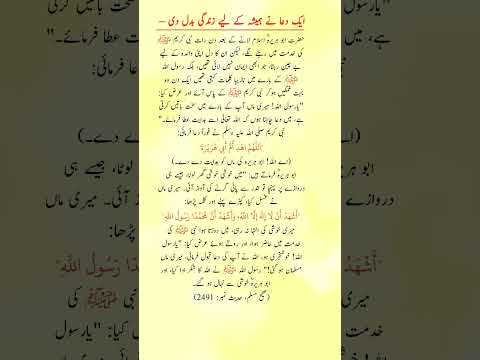 ایک دعا نے ہمیشہ کے لیے زندگی بدل دی –
حضرت ابو ہریرہؓ اسلام لانے کے بعد دن رات نبی کریم ﷺ
کی خدمت میں رہنے لگے، لیکن ان کا دل اپنی والدہ کے لیے
بے چین رہتا، جو ابھی ایمان نہیں لائی تھیں، بلکہ رسول اللہ
ﷺ کے بارے میں نازیبا کلمات کہتی تھیں ایک دن وہ
بہت غمگین ہو کر نبی کریم ﷺ کے پاس آئے اور عرض کیا:
"یا رسول اللہ! میری ماں آپ کے بارے میں سخت باتیں کرتی
ہے، میں دعا چاہتا ہوں کہ اللہ تعالیٰ اسے ہدایت عطا فرمائے۔"
نبی کریم صلی اللہ علیہ وسلم نے فوراً دعا فرمائی:
"اللَّهُمَّ اهْدِ أُمَّ أَبِي هُرَيْرَةَ"
(اے اللہ! ابو ہریرہ کی ماں کو ہدایت دے دے۔)
ابو ہریرہؓ فرماتے ہیں: "میں خوشی خوشی گھر لوٹا، جیسے ہی
دروازے پر پہنچا تو اندر سے پانی گرنے کی آواز آئی۔ میری ماں
نے غسل کیا، کپڑے پہنے اور کلمہ پڑھا:
"أَشْهَدُ أَنْ لَا إِلَهَ إِلَّا اللَّهُ، وَأَشْهَدُ أَنَّ مُحَمَّدًا رَسُولُ اللَّهِ"
میری خوشی کی انتہا نہ رہی، میں دوڑتا ہوا نبی ﷺ کی
خدمت میں حاضر ہوا، اور روتے ہوئے عرض کیا: "یا رسول
اللہ! خوشخبری ہو، اللہ نے آپ کی دعا قبول فرمائی، میری ماں
مسلمان ہو گئی!" رسول اللہ ﷺ نے اللہ کا شکر ادا کیا، اور
ابو ہریرہؓ خوشی سے نہال ہو گئے۔
(صحیح مسلم، حدیث نمبر: 2491)